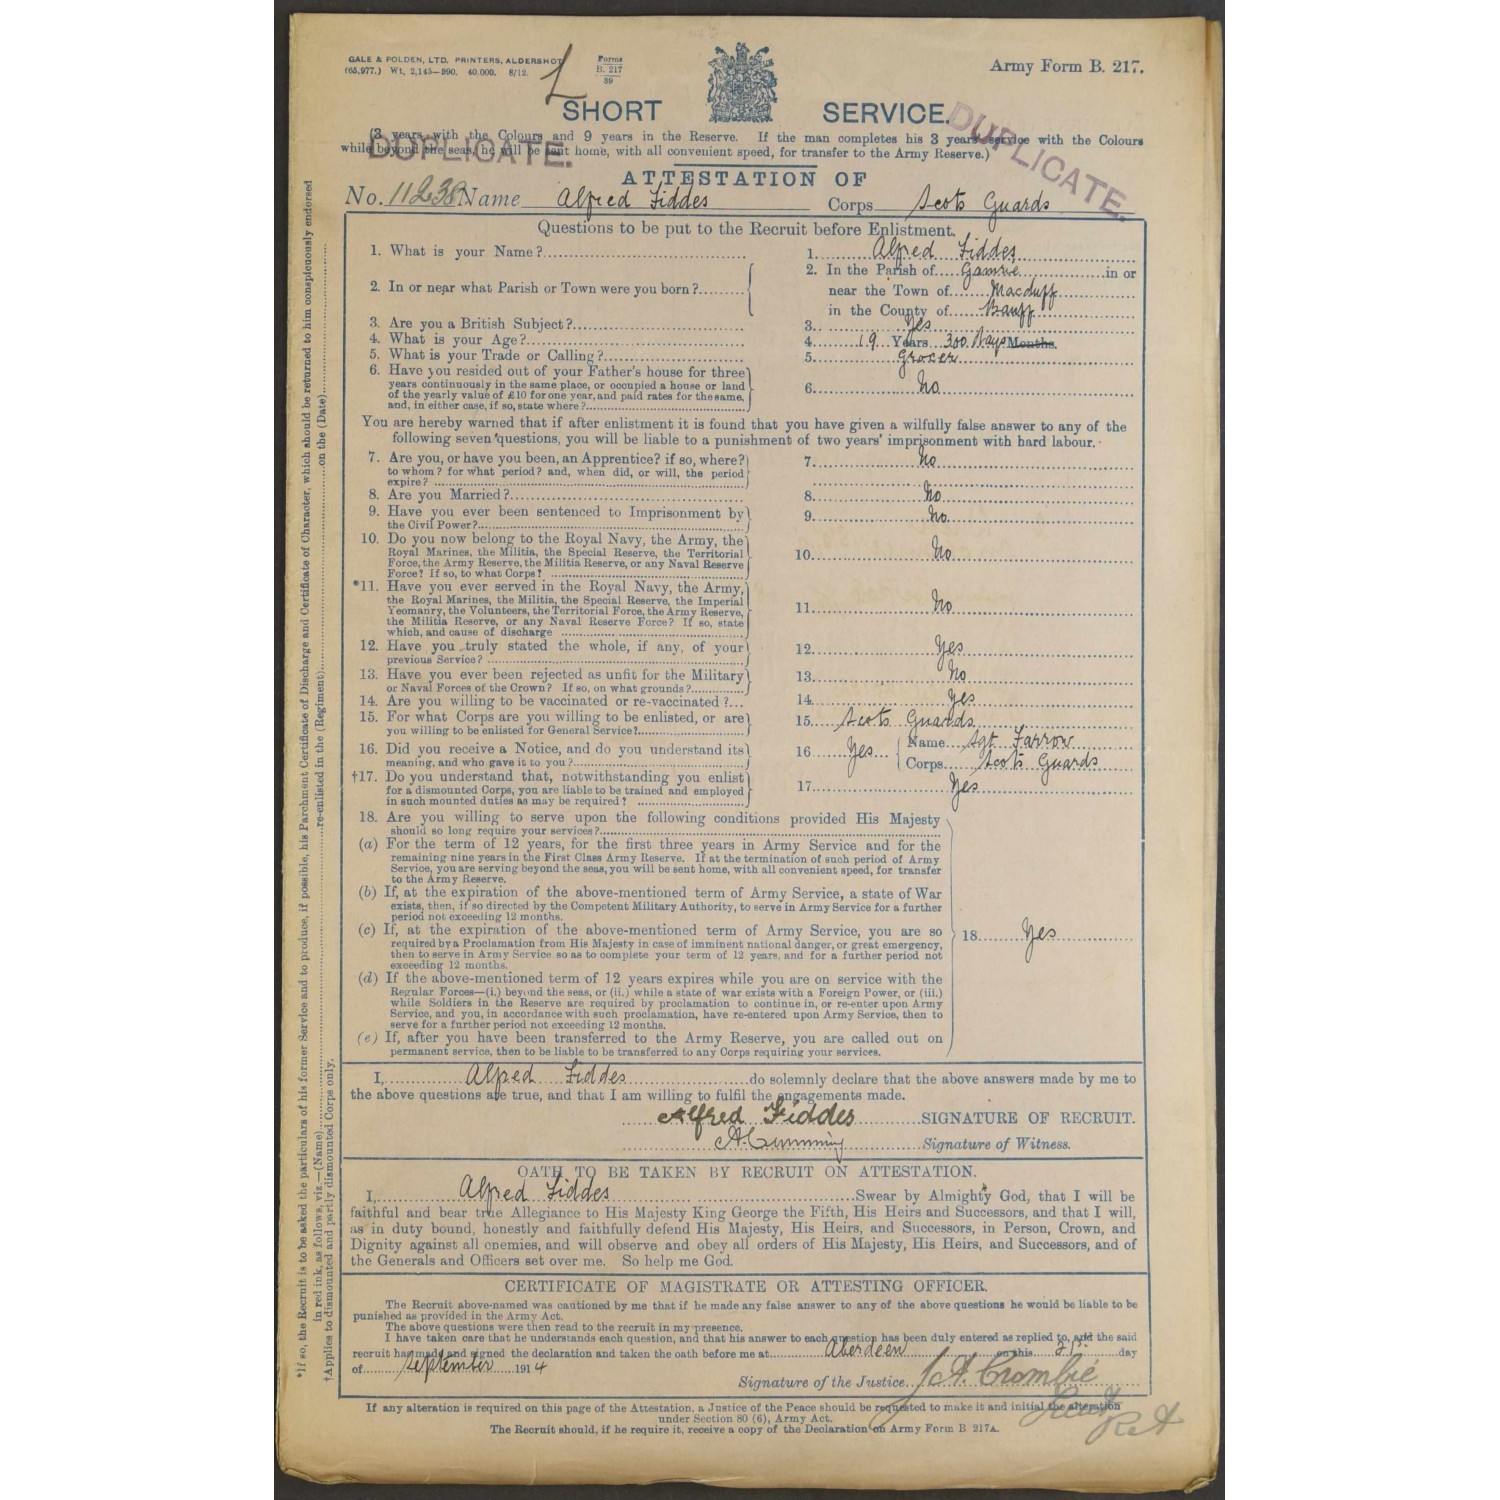 GALE & POLDEN, LTD. PRINTERS, ALDERSHOT
(65,977.) Wt. 2,145—990. 40,000. 8/12.
Forms
B. 217
39
Army Form B. 217.
SHORT SERVICE.
DUPLICATE.
DUPLICATE.
(3 years with the Colours and 9 years in the Reserve. If the man completes his 3 years' service with the Colours
while beyond the seas, he will be sent home, with all convenient speed, for transfer to the Army Reserve.)
ATTESTATION OF
No. 11238 Name Alfred Fiddes Corps Scots Guards
Questions to be put to the Recruit before Enlistment.
1. What is your Name? 1. Alfred Fiddes
2. In or near what Parish or Town were you born? 2. In the Parish of Gamrie in or
near the Town of Macduff
in the County of Banff
3. Are you a British Subject? 3. Yes
4. What is your Age? 4. 19 Years 300 Days Months
5. What is your Trade or Calling? 5. Grocer
6. Have you resided out of your Father's house for three
years continuously in the same place, or occupied a house or land
of the yearly value of £10 for one year, and paid rates for the same,
and, in either case, if so, state where? 6. No
You are hereby warned that if after enlistment it is found that you have given a wilfully false answer to any of the
following seven questions, you will be liable to a punishment of two years' imprisonment with hard labour.
7. Are you, or have you been, an Apprentice? if so, where? 7. No
to whom? for what period? and, when did, or will, the period
expire?
8. Are you Married? 8. No
9. Have you ever been sentenced to Imprisonment by
the Civil Power? 9. No
10. Do you now belong to the Royal Navy, the Army, the
Royal Marines, the Militia, the Special Reserve, the Territorial
Force, the Army Reserve, the Militia Reserve, or any Naval Reserve
Force? If so, to what Corps? 10. No
*11. Have you ever served in the Royal Navy, the Army,
the Royal Marines, the Militia, the Special Reserve, the Imperial
Yeomanry, the Volunteers, the Territorial Force, the Army Reserve,
the Militia Reserve, or any Naval Reserve Force? If so, state
which, and cause of discharge 11. No
12. Have you truly stated the whole, if any, of your
previous Service? 12. Yes
13. Have you ever been rejected as unfit for the Military
or Naval Forces of the Crown? If so, on what grounds? 13. No
14. Are you willing to be vaccinated or re-vaccinated? 14. Yes
15. For what Corps are you willing to be enlisted, or are
you willing to be enlisted for General Service? 15. Scots Guards
16. Did you receive a Notice, and do you understand its
meaning, and who gave it to you? 16 Yes Name Sgt Farrow
Corps Scots Guards
†17. Do you understand that, notwithstanding you enlist
for a dismounted Corps, you are liable to be trained and employed
in such mounted duties as may be required? 17. Yes
18. Are you willing to serve upon the following conditions provided His Majesty
should so long require your services?
(a) For the term of 12 years, for the first three years in Army Service and for the
remaining nine years in the First Class Army Reserve. If at the termination of such period of Army
Service, you are serving beyond the seas, you will be sent home, with all convenient speed, for transfer
to the Army Reserve.
(b) If, at the expiration of the above-mentioned term of Army Service, a state of War
exists, then, if so directed by the Competent Military Authority, to serve in Army Service for a further
period not exceeding 12 months.
(c) If, at the expiration of the above-mentioned term of Army Service, you are so
required by a Proclamation from His Majesty in case of imminent national danger, or great emergency,
then to serve in Army Service so as to complete your term of 12 years, and for a further period not
exceeding 12 months.
18. Yes
(d) If the above-mentioned term of 12 years expires while you are on service with the
Regular Forces—(i.) beyond the seas, or (ii.) while a state of war exists with a Foreign Power, or (iii.)
while Soldiers in the Reserve are required by proclamation to continue in, or re-enter upon Army
Service, and you, in accordance with such proclamation, have re-entered upon Army Service, then to
serve for a further period not exceeding 12 months.
(e) If, after you have been transferred to the Army Reserve, you are called out on
permanent service, then to be liable to be transferred to any Corps requiring your services.
I, Alfred Fiddes do solemnly declare that the above answers made by me to
the above questions are true, and that I am willing to fulfil the engagements made.
Alfred Fiddes SIGNATURE OF RECRUIT.
A. Cumming Signature of Witness.
OATH TO BE TAKEN BY RECRUIT ON ATTESTATION.
I, Alfred Fiddes Swear by Almighty God, that I will be
faithful and bear true Allegiance to His Majesty King George the Fifth, His Heirs and Successors, and that I will,
as in duty bound, honestly and faithfully defend His Majesty, His Heirs, and Successors, in Person, Crown, and
Dignity against all enemies, and will observe and obey all orders of His Majesty, His Heirs, and Successors, and of
the Generals and Officers set over me. So help me God.
CERTIFICATE OF MAGISTRATE OR ATTESTING OFFICER.
The Recruit above-named was cautioned by me that if he made any false answer to any of the above questions he would be liable to be
punished as provided in the Army Act.
The above questions were then read to the recruit in my presence.
I have taken care that he understands each question, and that his answer to each question has been duly entered as replied to, and the said
recruit has made and signed the declaration and taken the oath before me at Aberdeen on this day
of September 1914
Signature of the Justice J A Crombie
If any alteration is required on this page of the Attestation, a Justice of the Peace should be requested to make it and initial the alteration
under Section 80 (6), Army Act.
The Recruit should, if he require it, receive a copy of the Declaration on Army Form B 217A.
*If so, the Recruit is to be asked the particulars of his former Service and to produce, if possible, his Parchment Certificate of Discharge and Certificate of Character, which should be returned to him conspicuously endorsed
in red ink, as follows, viz.—(Name) re-enlisted in the (Regiment) on the (Date)
†Applies to dismounted and partly dismounted Corps only.